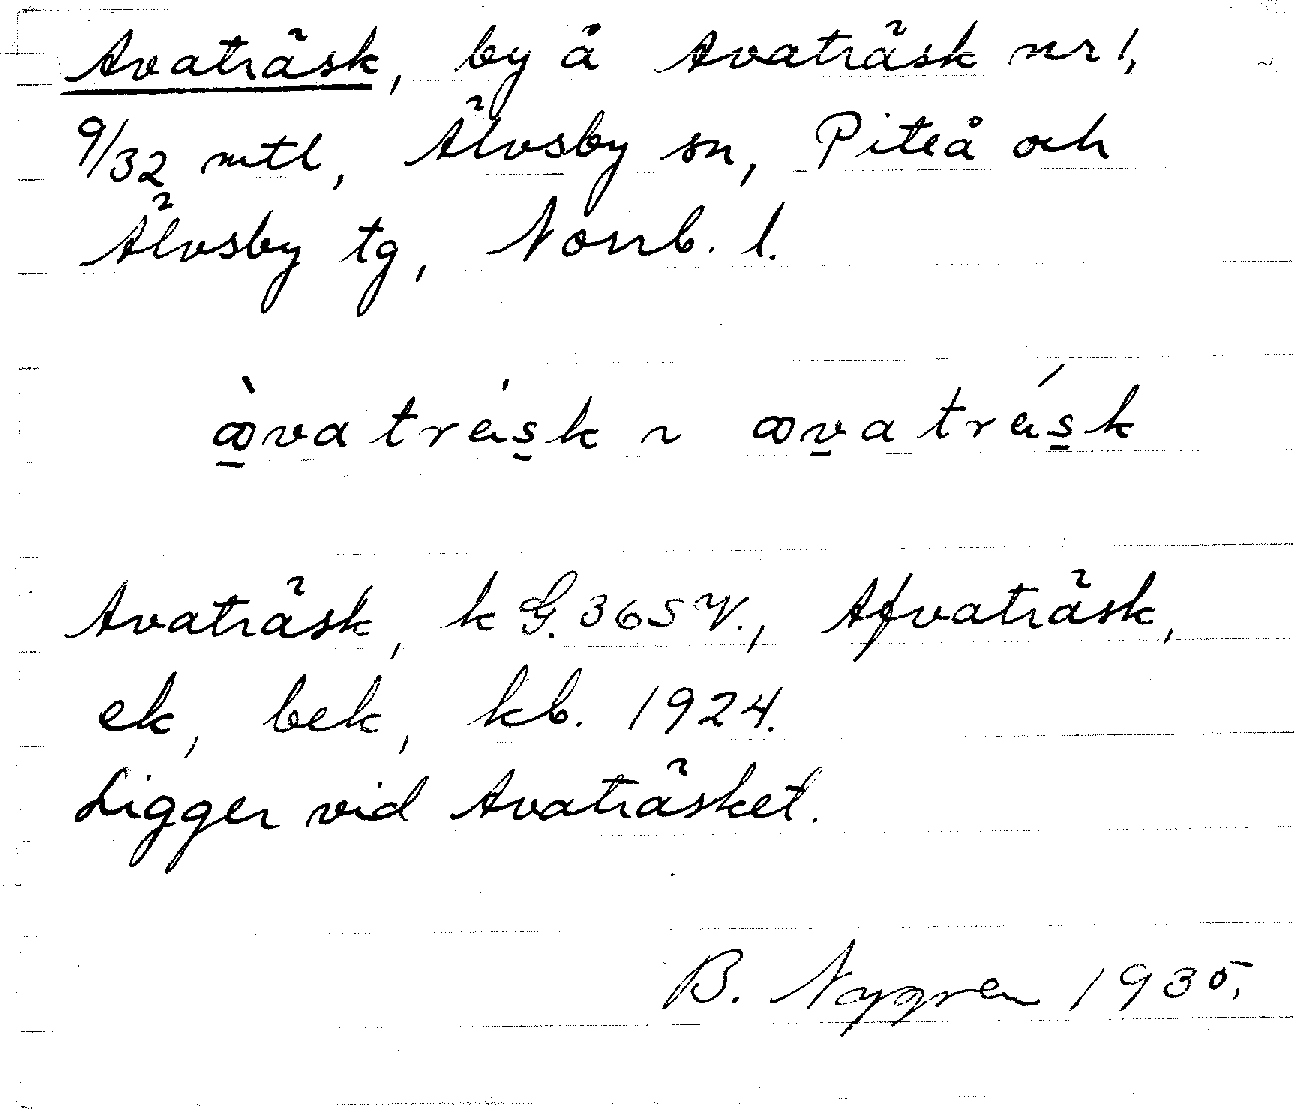 Avaträsk, by å Avaträsk nr 1,
9/32 mtl, Älvsby sn, Piteå och
Älvsby tg, Norrb. l.
Avaträsk, k G. 36 S V., Afvaträsk,
ek, bek, kb. 1924.
Ligger vid Avaträsket.
B. Nygren 1935.